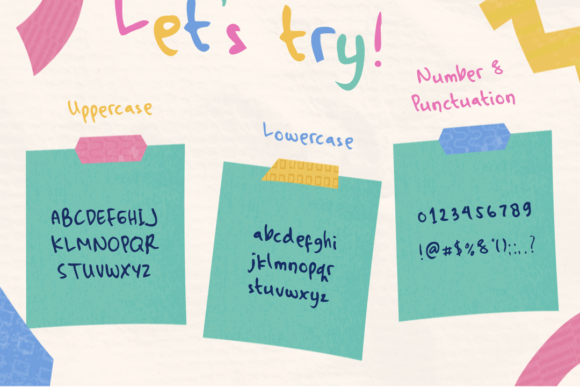 Let's try!
Uppercase
ABCDEFGHIJ
KLMNOPQR
STUVWXYZ
Lowercase
abcdefghi
jklmnopqr
stuvwxyz
Number &
Punctuation
0123456789
!@#$%&'();:,.?